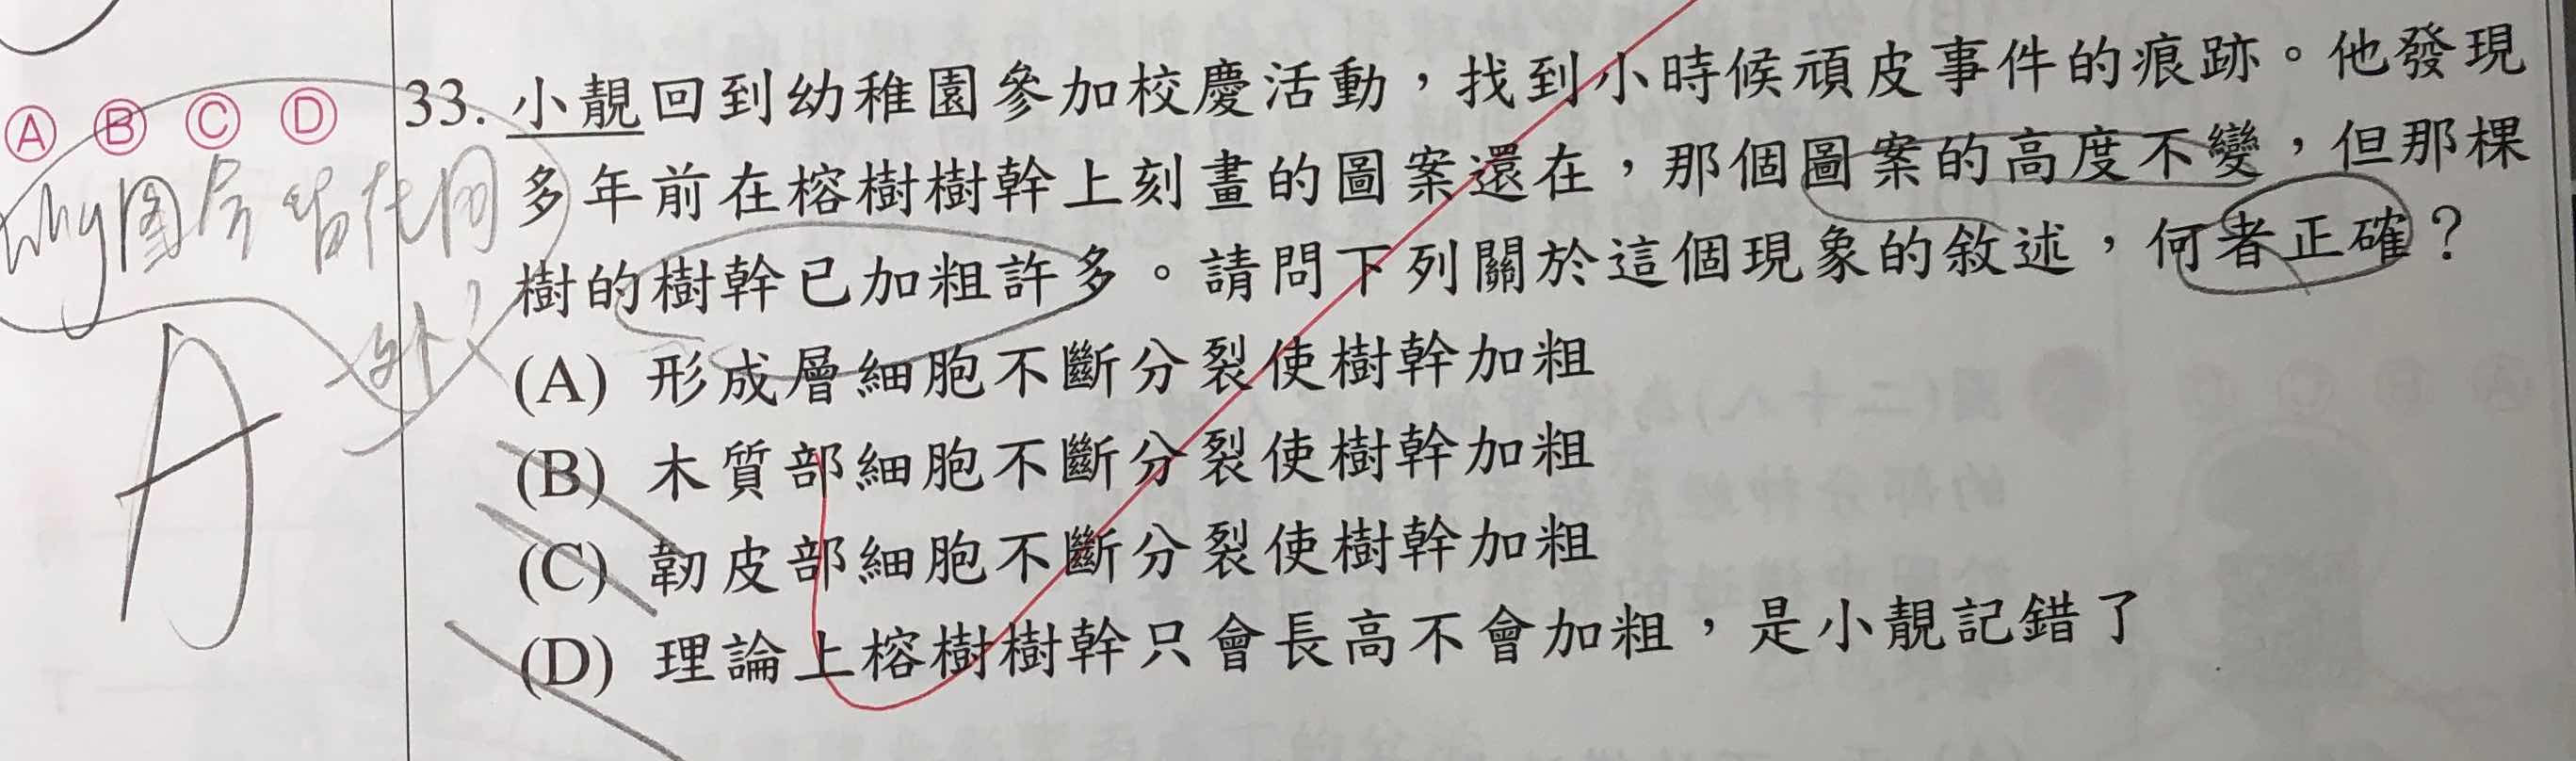 Ⓐ Ⓑ Ⓒ Ⓓ
33. 小靚回到幼稚園參加校慶活動，找到小時候頑皮事件的痕跡。他發現
多年前在榕樹樹幹上刻畫的圖案還在，那個圖案的高度不變，但那棵
樹的樹幹已加粗許多。請問下列關於這個現象的敘述，何者正確？
(A) 形成層細胞不斷分裂使樹幹加粗
(B) 木質部細胞不斷分裂使樹幹加粗
(C) 韌皮部細胞不斷分裂使樹幹加粗
(D) 理論上榕樹樹幹只會長高不會加粗，是小靚記錯了
why
A